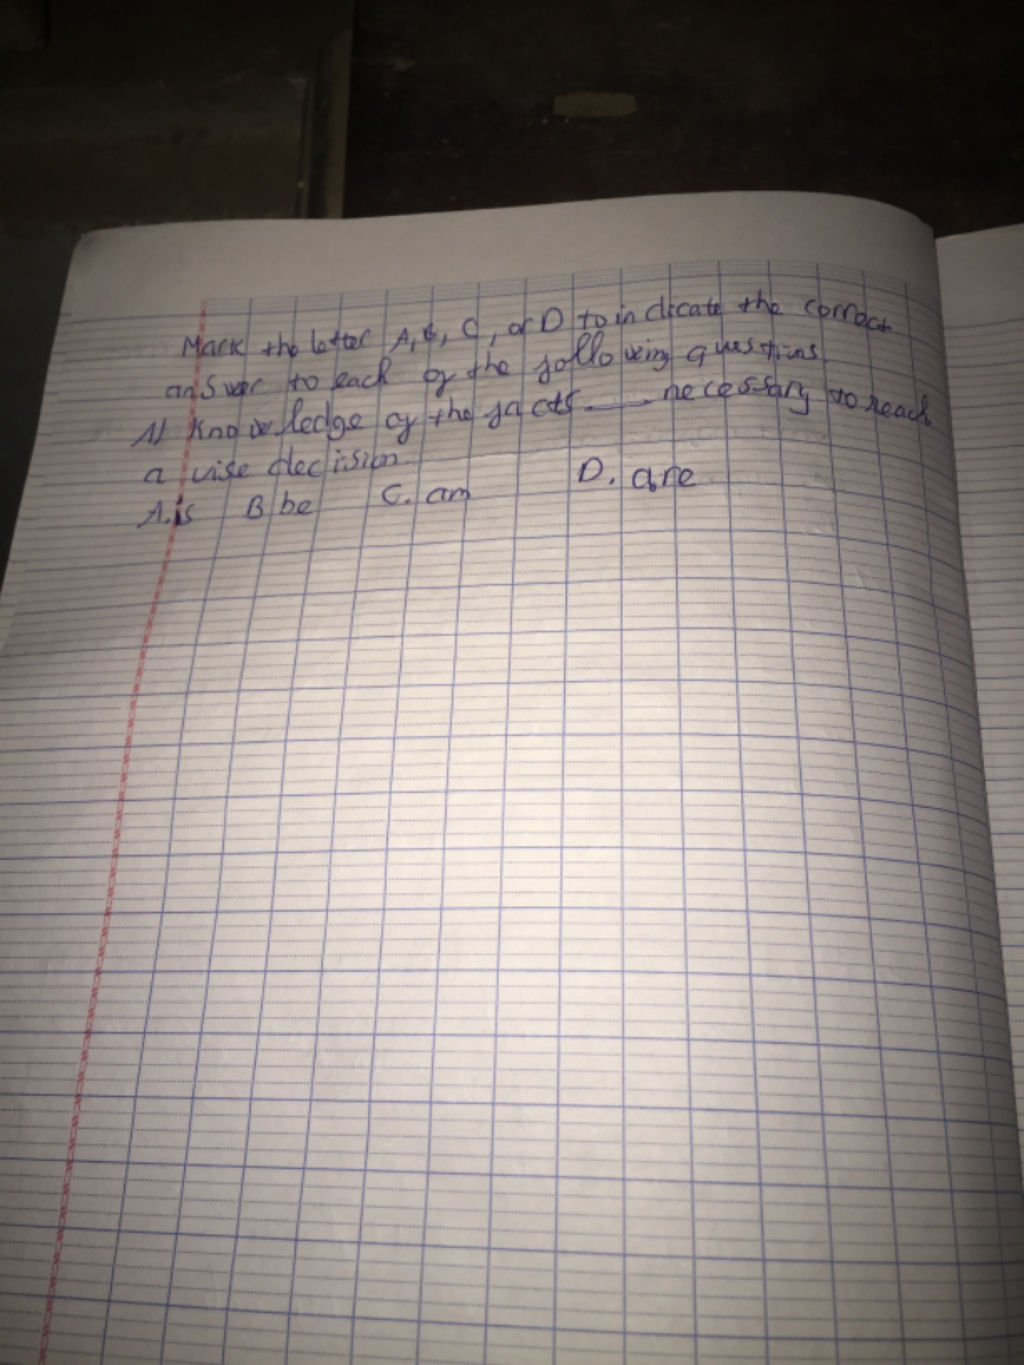 Mark the letter A, B, C, or D to indicate the correct
answer to each of the following questions
1) Knowledge of the facts ____ necessary to reach
a wise decision.
A. is B be C. am D. are